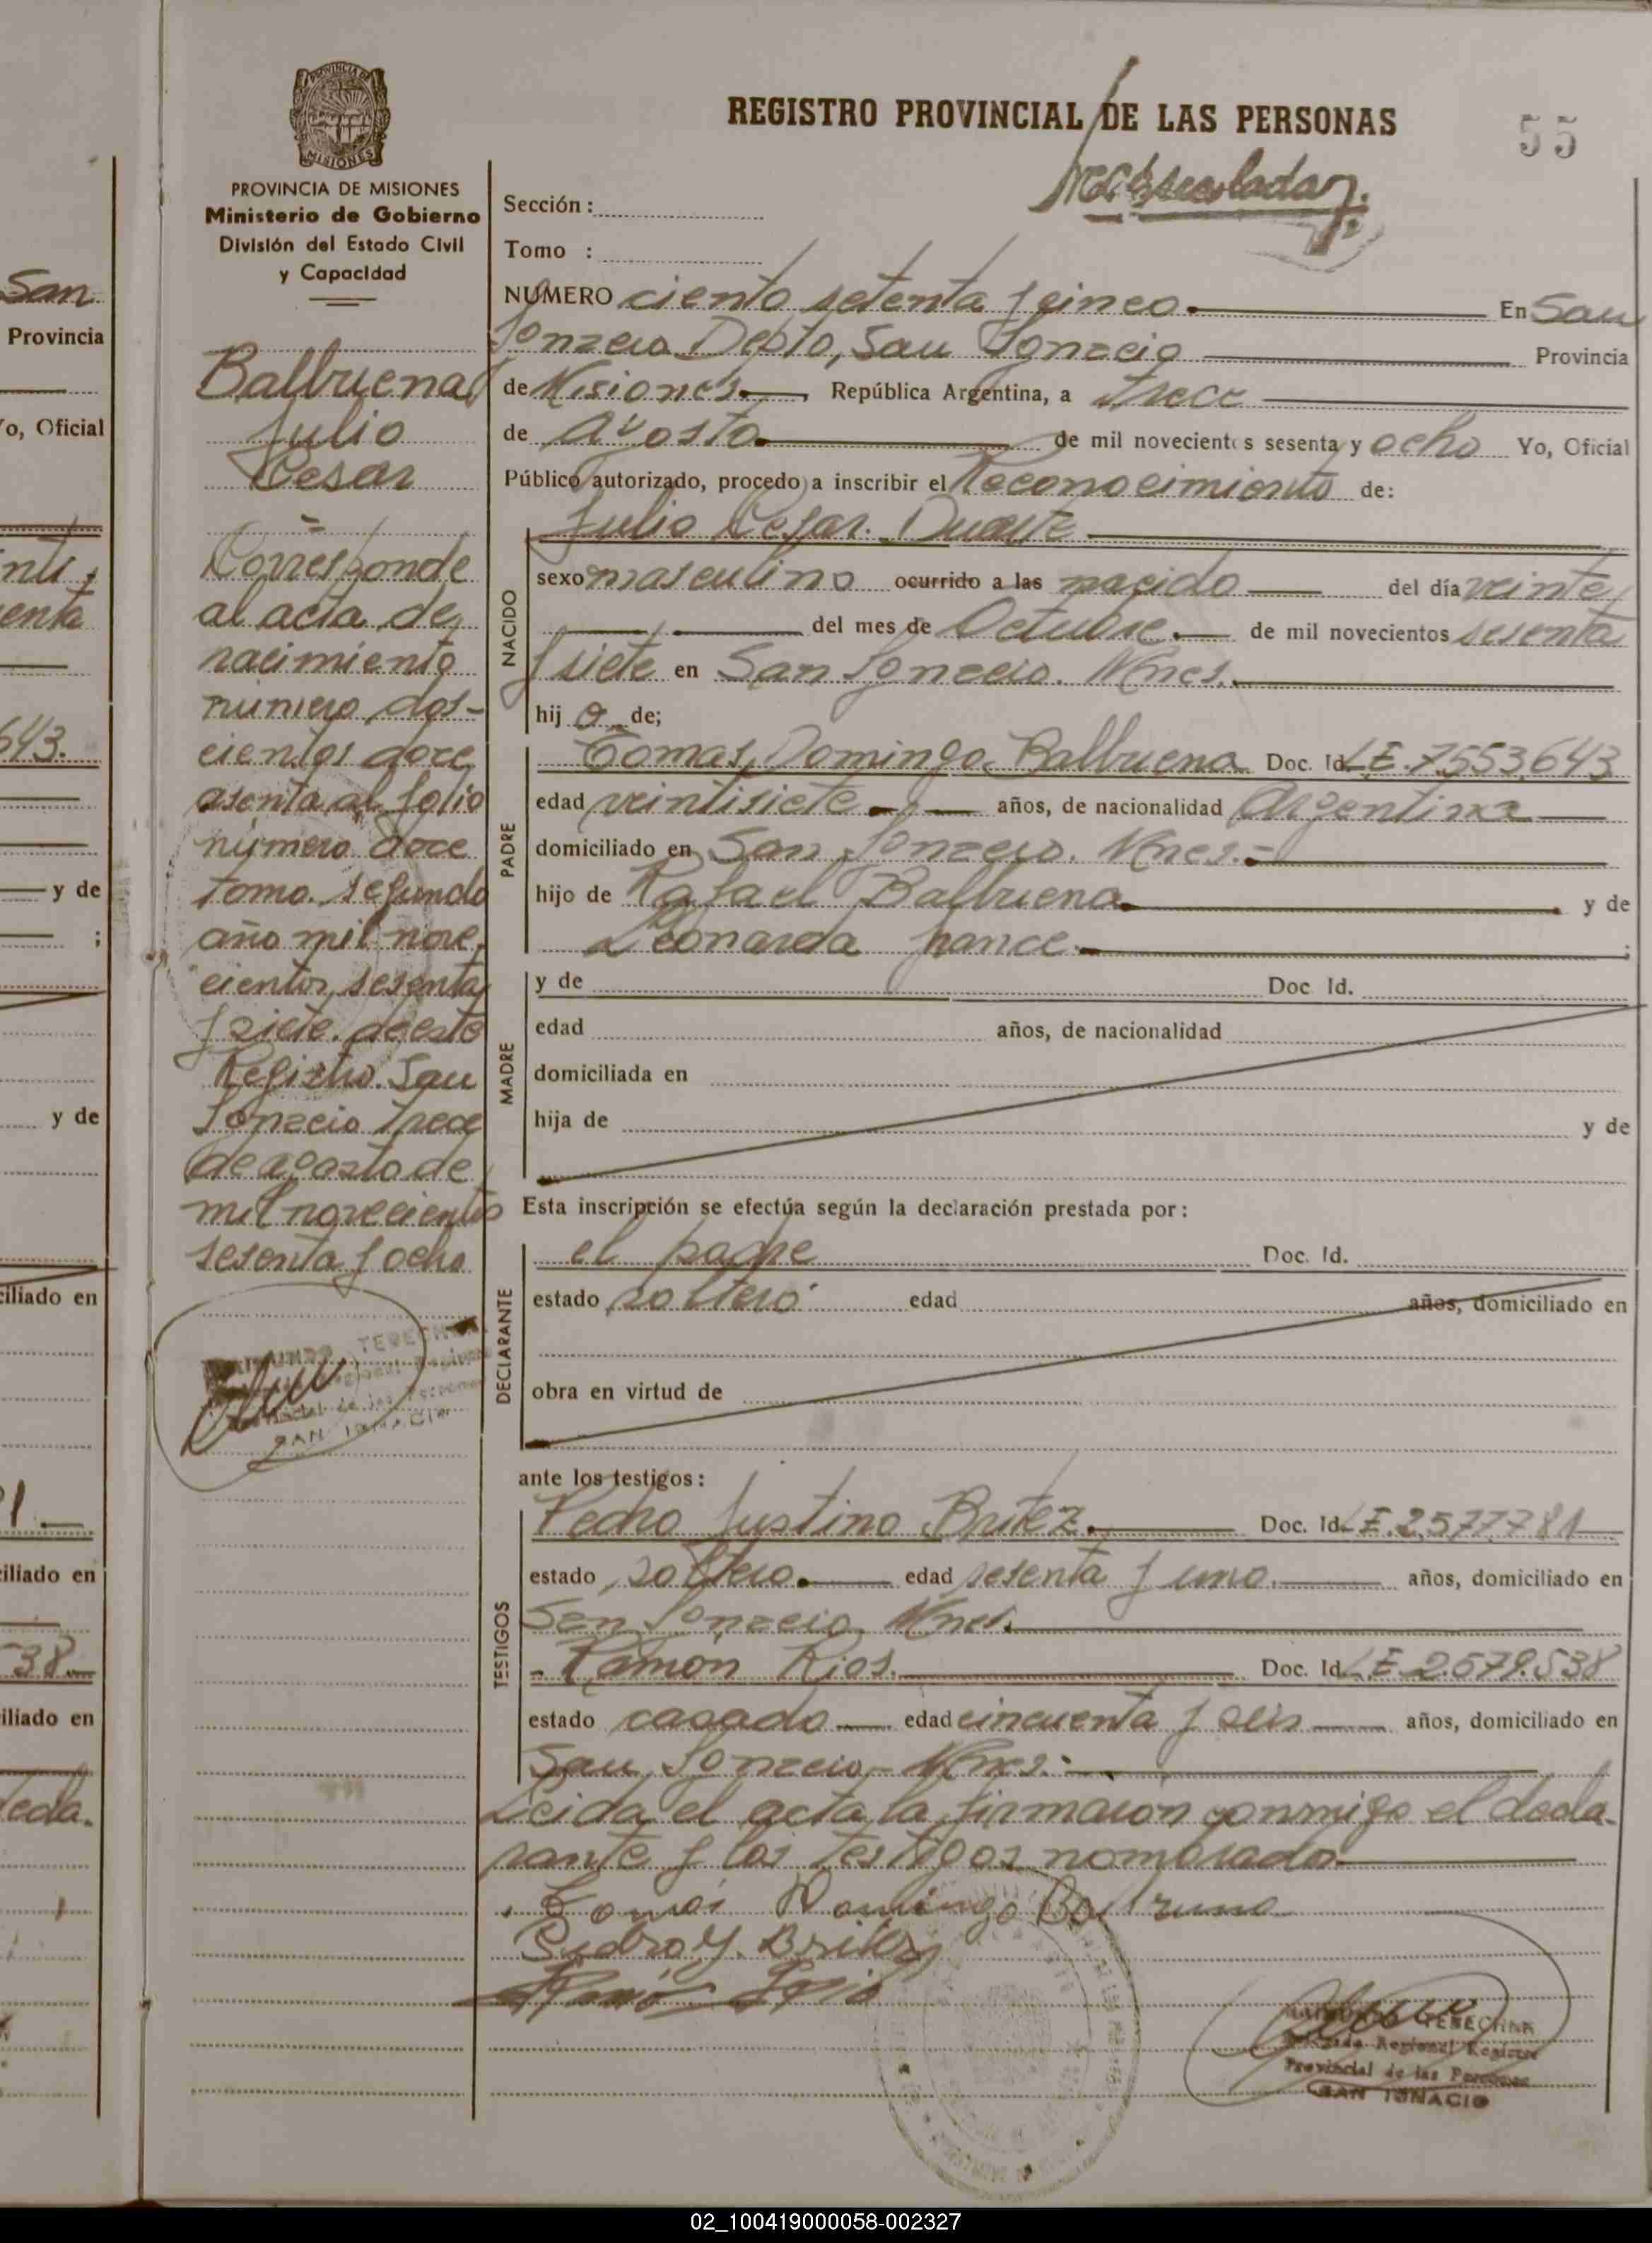 San
Provincia
Yo, Oficial
643.
y de
;
y de
ciliado en
ciliado en
38
iliado en
PROVINCIA DE MISIONES
Ministerio de Gobierno
División del Estado Civil
y Capacidad
Balbuena
Julio
Cesar
=
Corresponde
al acta de
nacimiento
numero dos-
cientos doce
asenta al folio
número doce
tomo segundo
año mil nove
cientos sesenta
y siete de este
Registro. San
Ignacio trece
de agosto de
mil novecientos
sesenta y ocho
REGISTRO PROVINCIAL DE LAS PERSONAS
55
Sección :
Tomo :
NUMERO ciento setenta y cinco. En San
Ignacio Depto, San Ignacio Provincia
de Misiones. República Argentina, a trece
de Agosto. de mil novecientos sesenta y ocho Yo, Oficial
Público autorizado, procedo a inscribir el Reconocimiento de:
Julio Cesar. Duarte
NACIDO
sexo masculino ocurrido a las nacido del día veinte
del mes de Octubre. de mil novecientos sesenta
y siete en San Ignacio. Mnes.
hij o de;
PADRE
Tomas Domingo Balbuena Doc. Id. L.E. 7.553.643
edad veintisiete años, de nacionalidad Argentina
domiciliado en San Ignacio. Mnes.-
hijo de Rafael Balbuena y de
Leonarda ;
MADRE
y de Doc. Id.
edad años, de nacionalidad
domiciliada en
hija de y de
Esta inscripción se efectúa según la declaración prestada por:
DECLARANTE
el padre Doc. Id.
estado soltero edad años, domiciliado en
obra en virtud de
ante los testigos:
TESTIGOS
Pedro Justino Britez. Doc. Id. L.E. 2.577.781
estado soltero. edad sesenta y uno. años, domiciliado en
San Ignacio Mnes.
- Ramón Rios. Doc. Id. L.E. 2.679.538
estado casado edad cincuenta y seis años, domiciliado en
San Ignacio- Mnes.
Leida el acta la firmaron conmigo el decla-
rante y los testigos nombrados
Tomás Domingo Balbuena
Pedro J. Britez
Delegado Regional Registro
Provincial de las Personas
SAN IGNACIO
02_100419000058-002327